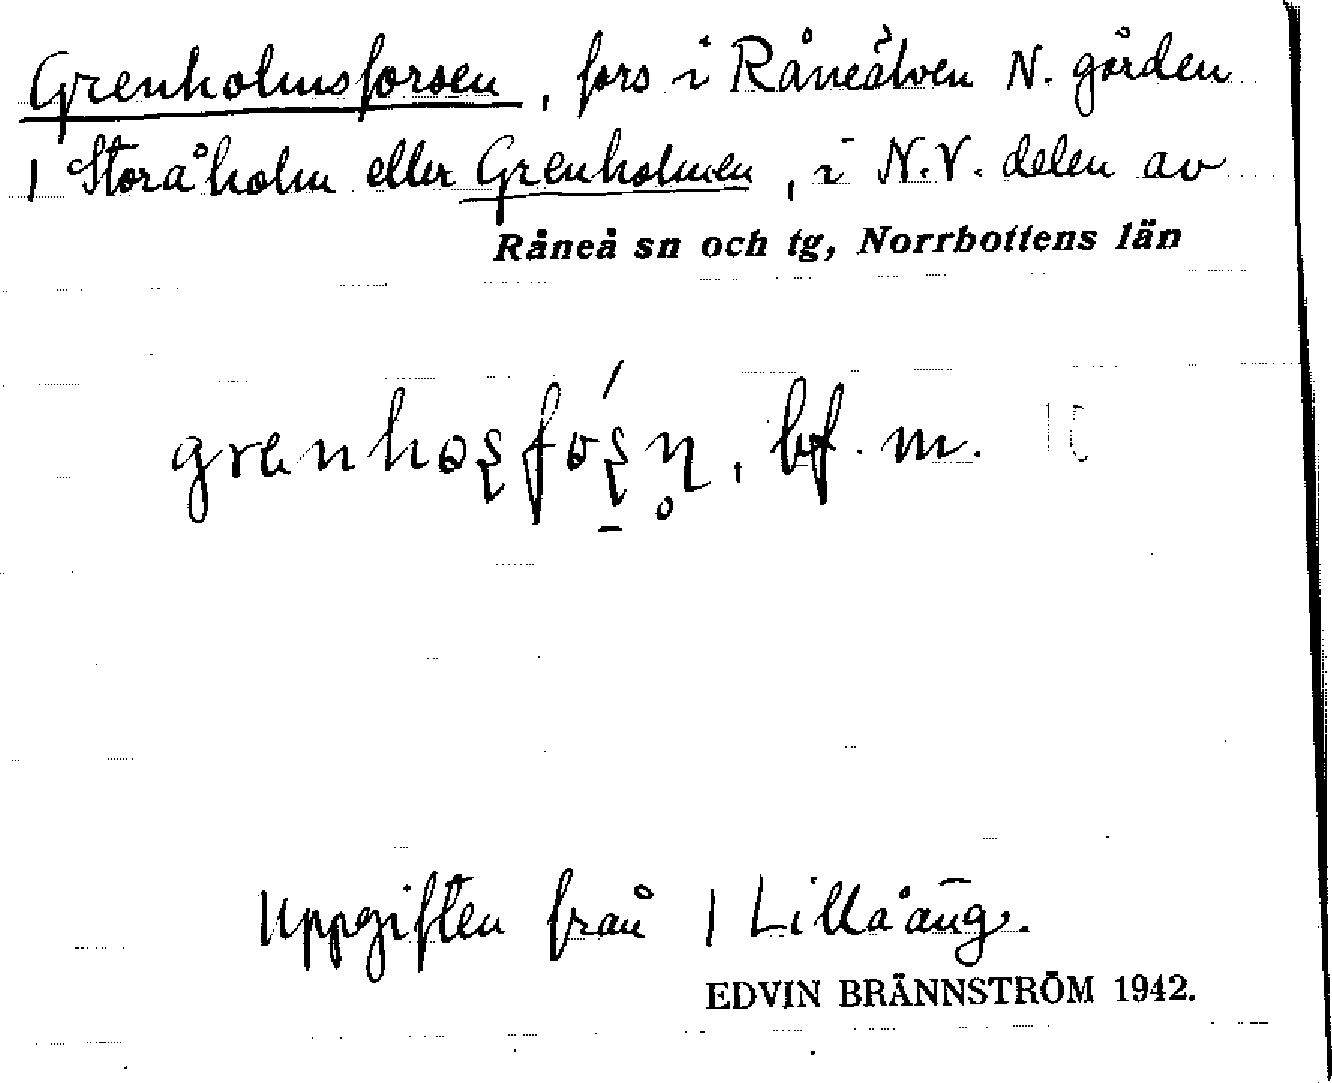 Grenholmsforsen, fors i Råneälven N. gården
1 Storåholm eller Grenholmen, i N.V. delen av
Råneå sn och tg, Norrbottens län
grenhoʂfóʂ̠ɳ̥, bf. m.
Uppgiften från 1 Lillåäng.
EDVIN BRÄNNSTRÖM 1942.